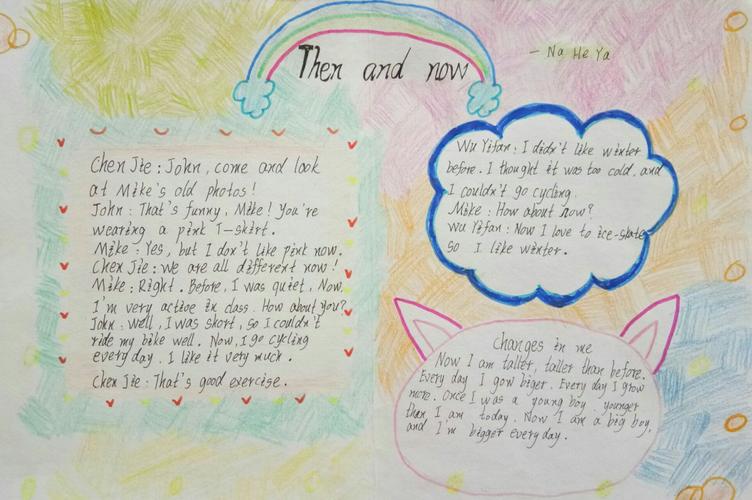 Then and now
- Na He Ya
Chen Jie : John, come and look
at Mike's old photos!
John : That's funny, Mike! You're
wearing a pink T-shirt.
Mike : Yes, but I don't like pink now.
Chen Jie : We are all different now!
Mike : Right. Before, I was quiet, Now,
I'm very active in class. How about you?
John : Well, I was short, so I couldn't
ride my bike well. Now, I go cycling
every day. I like it very much.
Chen Jie : That's good exercise.
Wu Yifan : I didn't like winter
before. I thought it was too cold, and
I couldn't go cycling.
Mike : How about now?
Wu Yifan : Now I love to ice-skate,
so I like winter.
Changes in me
Now I am taller, taller than before.
Every day I gow biger. Every day I grow
more. Once I was a young boy, younger
then I am today. Now I am a big boy,
and I'm bigger every day.